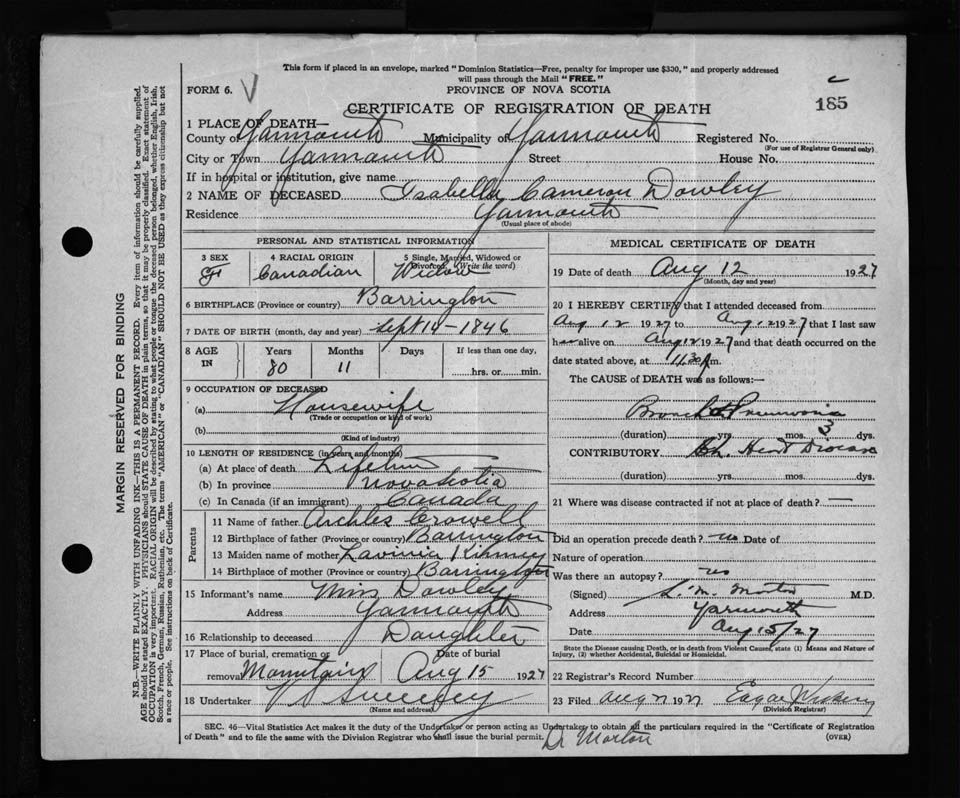 This form if placed in an envelope, marked "Dominion Statistics—Free, penalty for improper use $300," and properly addressed
will pass through the Mail "FREE."
FORM 6. V PROVINCE OF NOVA SCOTIA
CERTIFICATE OF REGISTRATION OF DEATH 185
1 PLACE OF DEATH—
County of Yarmouth Municipality of Yarmouth Registered No.
(For use of Registrar General only)
City or Town Yarmouth Street House No.
If in hospital or institution, give name
2 NAME OF DECEASED Isabella Cameron Dowley
Residence Yarmouth
(Usual place of abode)
PERSONAL AND STATISTICAL INFORMATION
3 SEX 4 RACIAL ORIGIN 5 Single, Married, Widowed or
Divorced (Write the word)
F Canadian Widow
6 BIRTHPLACE (Province or country) Barrington
7 DATE OF BIRTH (month, day and year) Sept 14-1846
8 AGE IN Years Months Days If less than one day,
80 11 hrs. or min.
9 OCCUPATION OF DECEASED
(a) Housewife
(Trade or occupation or kind of work)
(b)
(Kind of industry)
10 LENGTH OF RESIDENCE (in years and months)
(a) At place of death Lifetime
(b) In province Nova Scotia
(c) In Canada (if an immigrant) Canada
Parents
11 Name of father Crowell
12 Birthplace of father (Province or country) Barrington
13 Maiden name of mother Lavinia
14 Birthplace of mother (Province or country) Barrington
15 Informant's name Miss Dowley
Address Yarmouth
16 Relationship to deceased Daughter
17 Place of burial, cremation or Date of burial
removal Mountain Aug 15 1927
18 Undertaker V S Sweeney
(Name and address)
MEDICAL CERTIFICATE OF DEATH
19 Date of death Aug 12 1927
(Month, day and year)
20 I HEREBY CERTIFY that I attended deceased from
Aug 12 1927 to Aug 12 1927 that I last saw
her alive on Aug 12 1927 and that death occurred on the
date stated above, at 11.30 m.
The CAUSE of DEATH was as follows:—
Broncho Pneumonia
(duration) yrs. mos. 3 dys.
CONTRIBUTORY Ch. Heart Disease
(duration) yrs. mos. dys.
21 Where was disease contracted if not at place of death? —
Did an operation precede death? no Date of
Nature of operation
Was there an autopsy? no
(Signed) S. M. Morton M.D.
Address Yarmouth
Date Aug 15/27
State the Disease causing Death, or in death from Violent Causes, state (1) Means and Nature of
Injury, (2) whether Accidental, Suicidal or Homicidal.
22 Registrar's Record Number
23 Filed Aug 1927 Edgar
(Division Registrar)
SEC. 46—Vital Statistics Act makes it the duty of the Undertaker or person acting as Undertaker to obtain all the particulars required in the "Certificate of Registration
of Death" and to file the same with the Division Registrar who shall issue the burial permit. (OVER)
Dr Morton
MARGIN RESERVED FOR BINDING
N.B.—WRITE PLAINLY WITH UNFADING INK—THIS IS A PERMANENT RECORD. Every item of information should be carefully supplied.
AGE should be stated EXACTLY. PHYSICIANS should STATE CAUSE OF DEATH in plain terms, so that it may be properly classified. Exact statement of
OCCUPATION is very important. RACIAL ORIGIN will be described by stating to what people or tongue the deceased person belonged, whether English, Irish,
Scotch, French, German, Russian, Ruthenian, etc. The terms "AMERICAN" or "CANADIAN" SHOULD NOT BE USED as they express citizenship but not
a race or people. See instructions on back of Certificate.